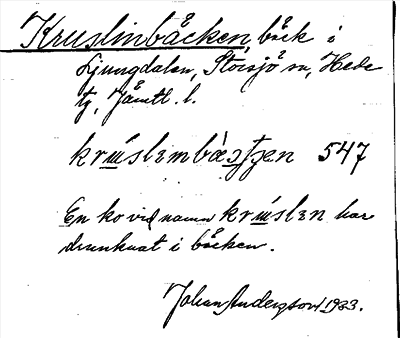 Kruslinbäcken, bäck i
Ljungdalen, Storsjö sn, Hede
tg, Jämtl. l.
547
En ko vid namn krúslɛn har
drunknat i bäcken.
Johan Andersson 1933.